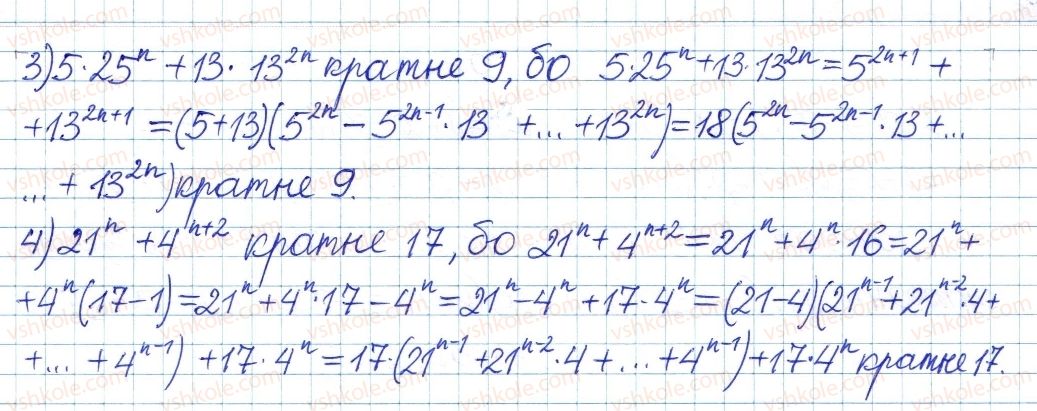 3) 5·25ⁿ + 13·13²ⁿ кратне 9, бо 5·25ⁿ+13·13²ⁿ=5²ⁿ⁺¹ +
+13²ⁿ⁺¹ =(5+13)(5²ⁿ – 5²ⁿ⁻¹·13 +... +13²ⁿ)=18(5²ⁿ–5²ⁿ⁻¹·13+...
... + 13²ⁿ) кратне 9.
4) 21ⁿ +4ⁿ⁺² кратне 17, бо 21ⁿ+4ⁿ⁺²=21ⁿ+4ⁿ·16=21ⁿ+
+4ⁿ(17–1)=21ⁿ+4ⁿ·17–4ⁿ=21ⁿ–4ⁿ+17·4ⁿ=(21–4)(21ⁿ⁻¹+21ⁿ⁻²·4+
+... +4ⁿ⁻¹) +17·4ⁿ=17·(21ⁿ⁻¹+21ⁿ⁻²·4+...+4ⁿ⁻¹)+17·4ⁿ кратне 17.